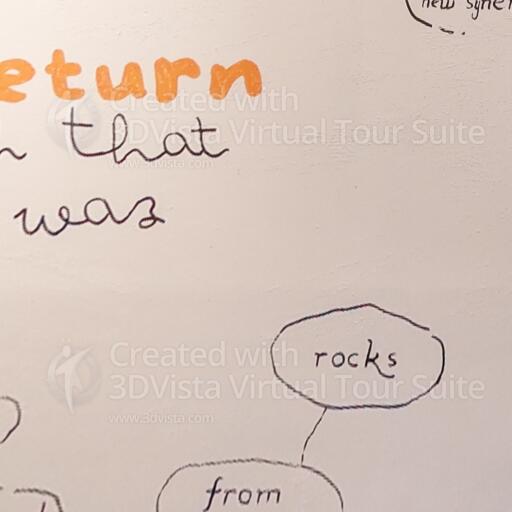 new syner
eturn
that
was
rocks
from
Created with
3DVista Virtual Tour Suite
www.3dvista.com
Created with
3DVista Virtual Tour Suite
www.3dvista.com